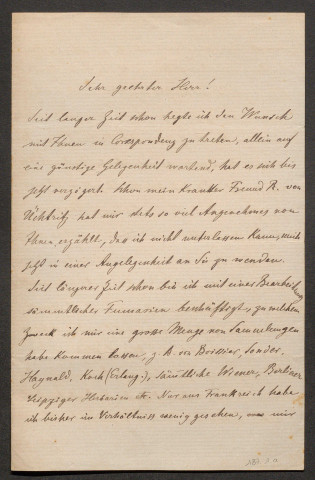 Sehr geehrter Herr!
Seit langer Zeit schon hegte ich den Wunsch
mit Ihnen in Correspondenz zu treten, allein auf
eine günstige Gelegenheit wartend, hat es sich bis
jetzt verzögert. Schon mein kranker Freund R. von
Uchtritz hat mir stets so viel Angenehmes von
Ihnen erzählt, daß ich nicht unterlassen kann, mich
jetzt in einer Angelegenheit an Sie zu wenden.
Seit längerer Zeit schon bin ich mit einer Bearbeitung
sämmtlicher Fumarien beschäftigt, zu welchem
Zweck ich mir eine grosse Menge von Sammlungen
habe kommen lassen, z. B. von Boissier, Sonder,
Haynald, Koch (Erlang.), sämtliche Wiener, Berliner
Leipziger Herbarien etc. Nur aus Frankreich habe
ich bisher im Verhältniss wenig gesehen, was mir